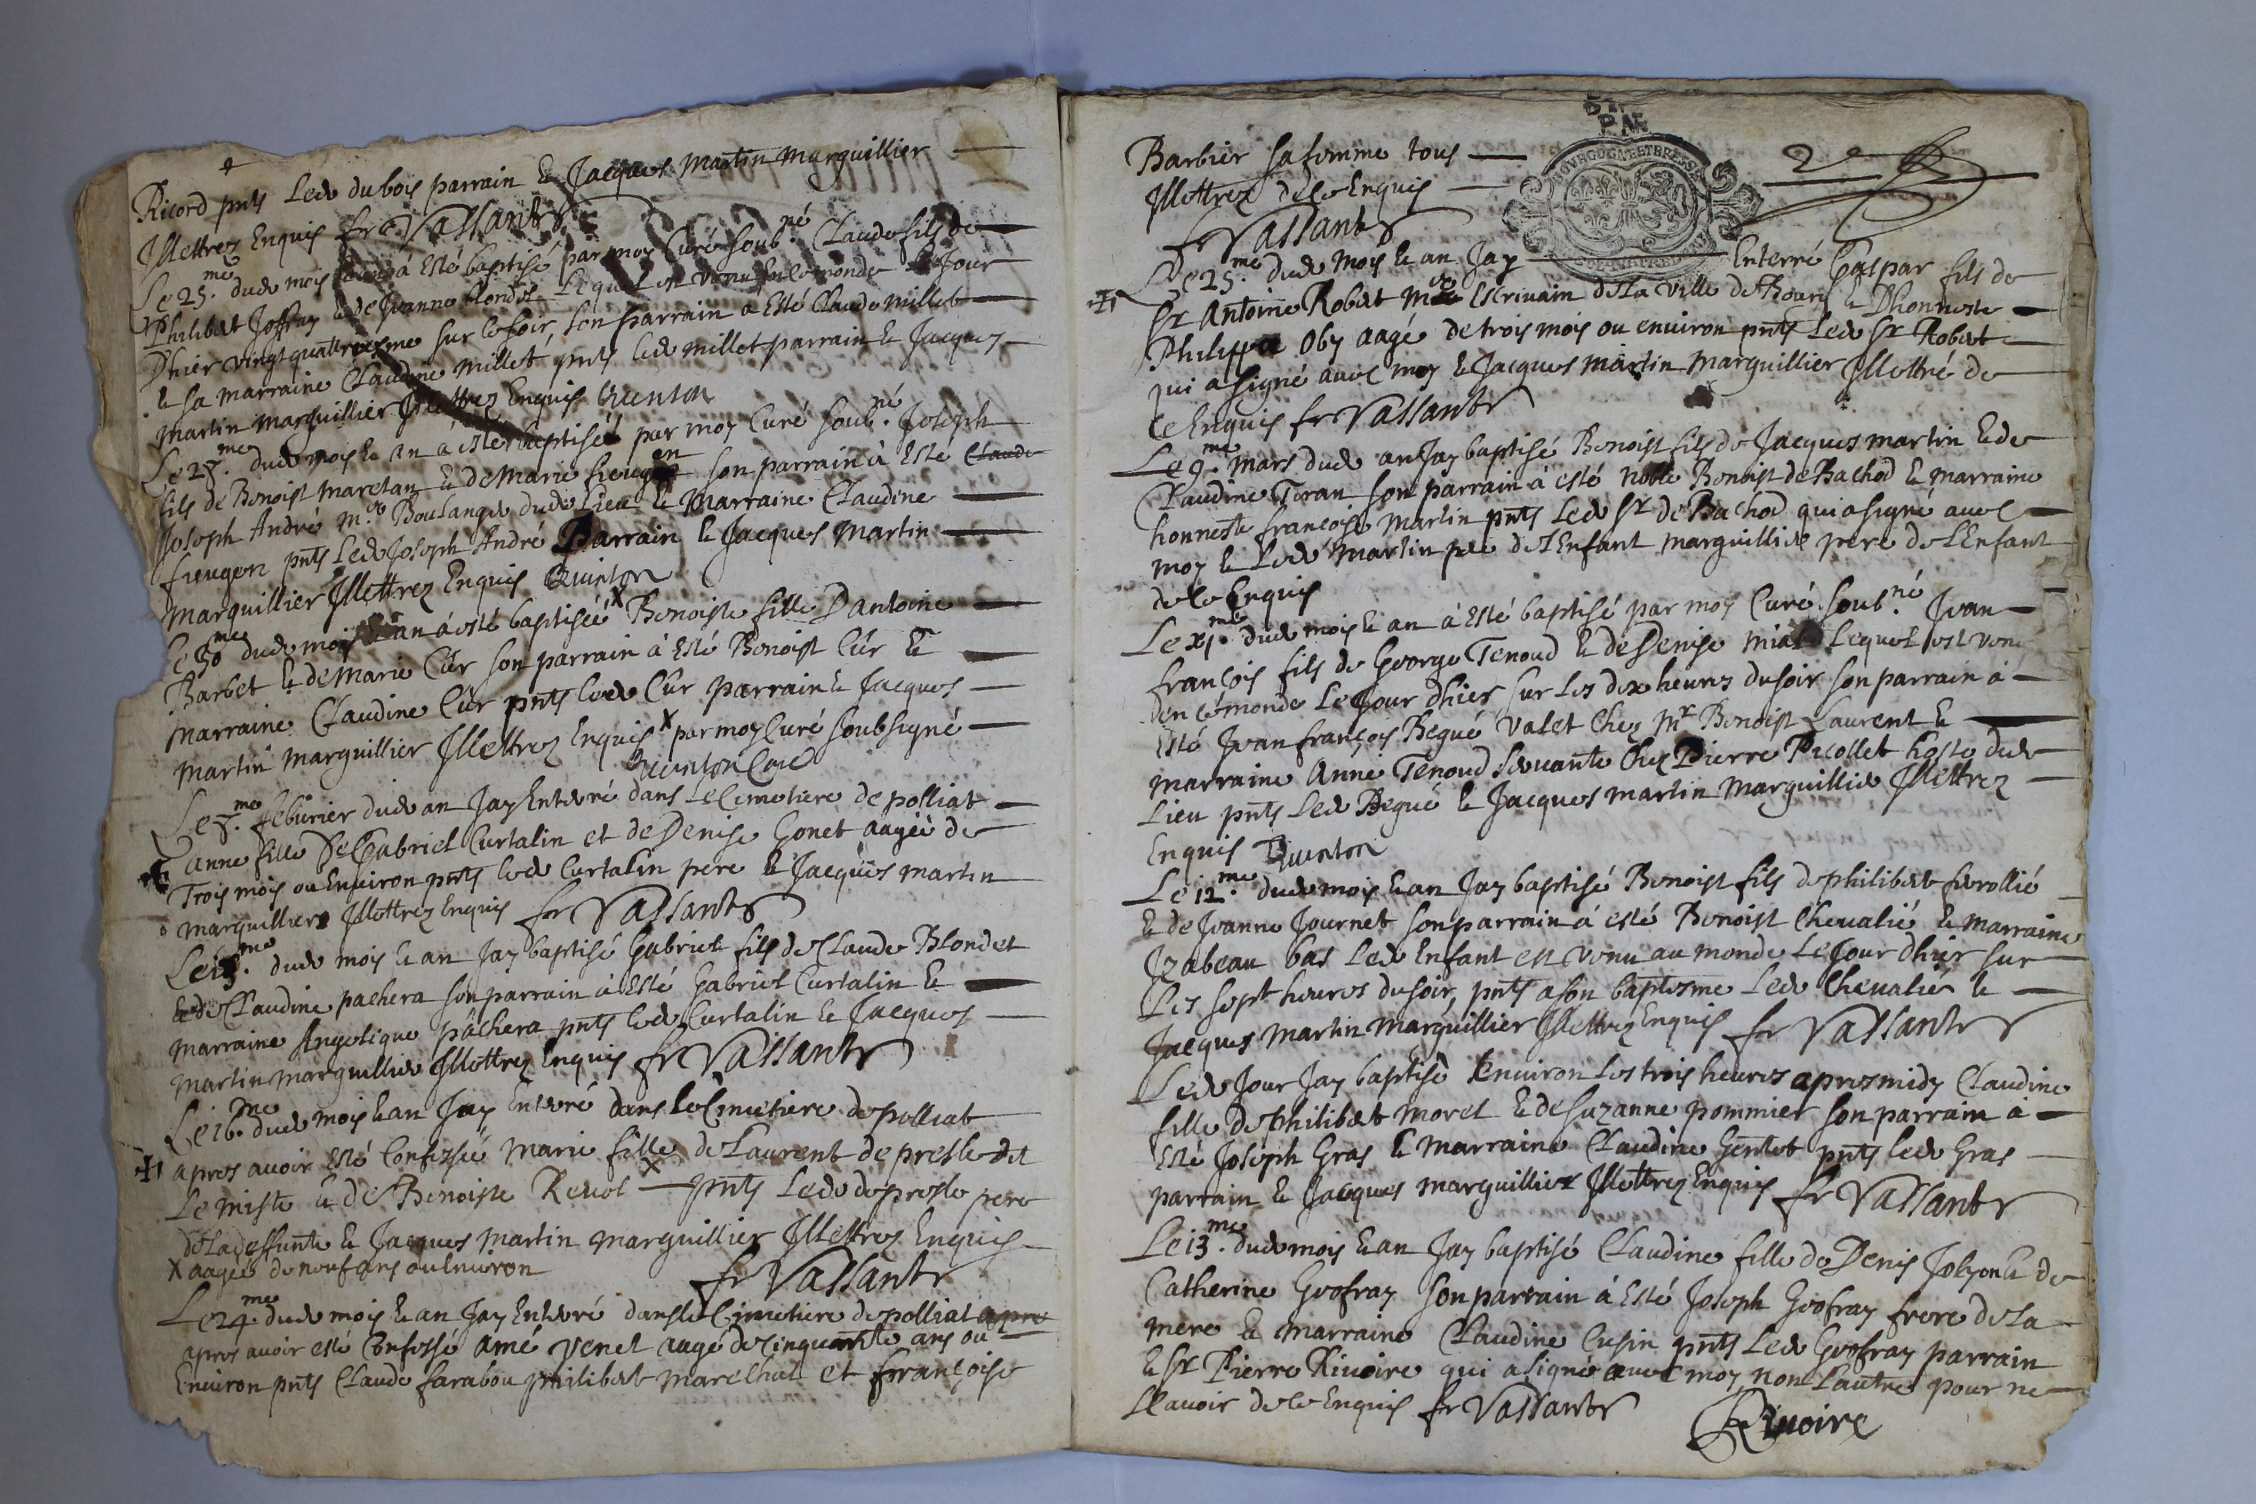 Ricord pnts Led dubois parrain & Jacques Martin Marguillier
Illettrez Enquis fr Vassant
Le 25.me dud mois & an à Esté baptisé par moy Curé soub.né Claude fils de
Philibet Joffray & de Jeanne blondet Lequel est venu en ce monde Le Jour
Dhier vingt quattriesme sur le soir, son parrain a esté Claude millet
& sa marraine Claudine millet pnts led millet parrain & Jacques
martin marguillier Illettrez Enquis Quinton
Le 27.me dud mois & an a esté baptisé par moy Curé soub.né Joseph
fils de Benoist marctan & de Marie fieugen son parrain à Esté Claude
Joseph André m.e Boulanger dud Lieu & Marraine Claudine
fieugen pnts Led Joseph André Parrain & Jacques Martin
Marguillier Illettrez Enquis Quinton
Le 30me dud mois & an à esté baptisée x Benoiste fille D antoine
Barbet & de Marie Cûr son parrain à Esté Benoist Cûr &
marraine Claudine Cûr pnts led Cûr parrain & Jacques
Martin Marguillier Illettrez Enquis x par moy Curé soubsigné
Quinton Curé
Le 7.me feburier dud an Jay Enterré dans Le Cimetiere de polliat
anne fille De Gabriel Curtalin et de Denise Gonet aagée de
Trois mois ou Environ pnts led Curtalin pere & Jacques martin
marguilliers Illettrez Enquis fr Vassant
Le 13.me dud mois & an Jay baptisé Gabriel fils de Claude Blondet
& de Claudine pachera son parrain à Esté Gabriel Curtalin &
marraine Angelique pachera pnts led Curtalin & Jacques
Martin marguillier Illettrez Enquis fr Vassant
Le 16.me dud mois & an Jay Enterré dans le Cimetiere de polliat
apres avoir Esté Confessée Marie fille x de Laurent de presle dit
Le miste & de Benoiste Revol pnts Led de presle pere
de La deffunte & Jacques Martin Marguillier Illettrez Enquis
x aagée de neuf ans ou Environ fr Vassant
Le 24.me dud mois & an Jay Enterré dans le Cimetiere de polliat apre
apres avoir esté Confessé Amé Venet aagé de cinquante ans ou
Environ pnts Claude farabou philibert marelhal et françoise
Barbier sa femme tous
Illettrez de ce Enquis
fr Vassant
Le 25.me dud Mois & an Jay Enterré Gaspar fils de
Sr Antoine Robert m.e Escrivain de La ville de Bourg & Dhonneste
Philippe Oby aagé de trois mois ou environ pnts Led Sr Robert
qui a signé avec moy & Jacques Martin Marguillier Illettré de
Ce Enquis fr Vassant
Le 9.me Mars dud an Jay baptisé Benoist fils de Jacques martin & de
Claudine Teran son parrain à esté Noble Benoist de Bachod & marraine
honneste françoise Martin pnts Led Sr de Bachod qui a signé avec
moy & Led Martin pere de L'Enfant marguillier pere de L'Enfant
de ce Enquis
Le xj.me dud mois & an à Esté baptisé par moy Curé soub.né Jean
françois fils de George Tenoud & de Denise mial Lequel est venu
en ce monde Le Jour dhier sur Les dix heures du soir son parrain à
Esté Jean françois Begué Valet Chez Mr Benoist Laurent &
marraine Anne Tenoud servante Chez Pierre Picollet hoste dud
Lieu pnts Led Begué & Jacques martin Marguillier Illettrez
Enquis Quinton
Le 12.me dud mois & an Jay baptisé Benoist fils de philibet fierollié
& de Jeanne Journet son parrain à esté Benoist Chevalié & marraine
Izabeau bas Led Enfant est venu au monde Le Jour dhier sur
Les sept heures du soir, pnts a son baptesme Led Chevalier &
Jacques Martin Marguillier Illettrez Enquis fr Vassant
Led Jour Jay baptisé Environ Les trois heures apres midy Claudine
fille de Philibet Moret & de Suzanne pommier son parrain à
Esté Joseph Gras & Marraine Claudine Gentet pnts led Gras
parrain & Jacques marguillier Illettrez Enquis fr Vassant
Le 13.me dud mois & an Jay baptisé Claudine fille de Denis Jolyon & de
Catherine Geofray son parrain à Esté Joseph Geofray frere de La
mere & marraine Claudine Cusin pnts Led Geofray parrain
& Sr Pierre Rivoire qui a signé avec moy non Lautre pour ne
Sçavoir de ce Enquis fr Vassant
Rivoire